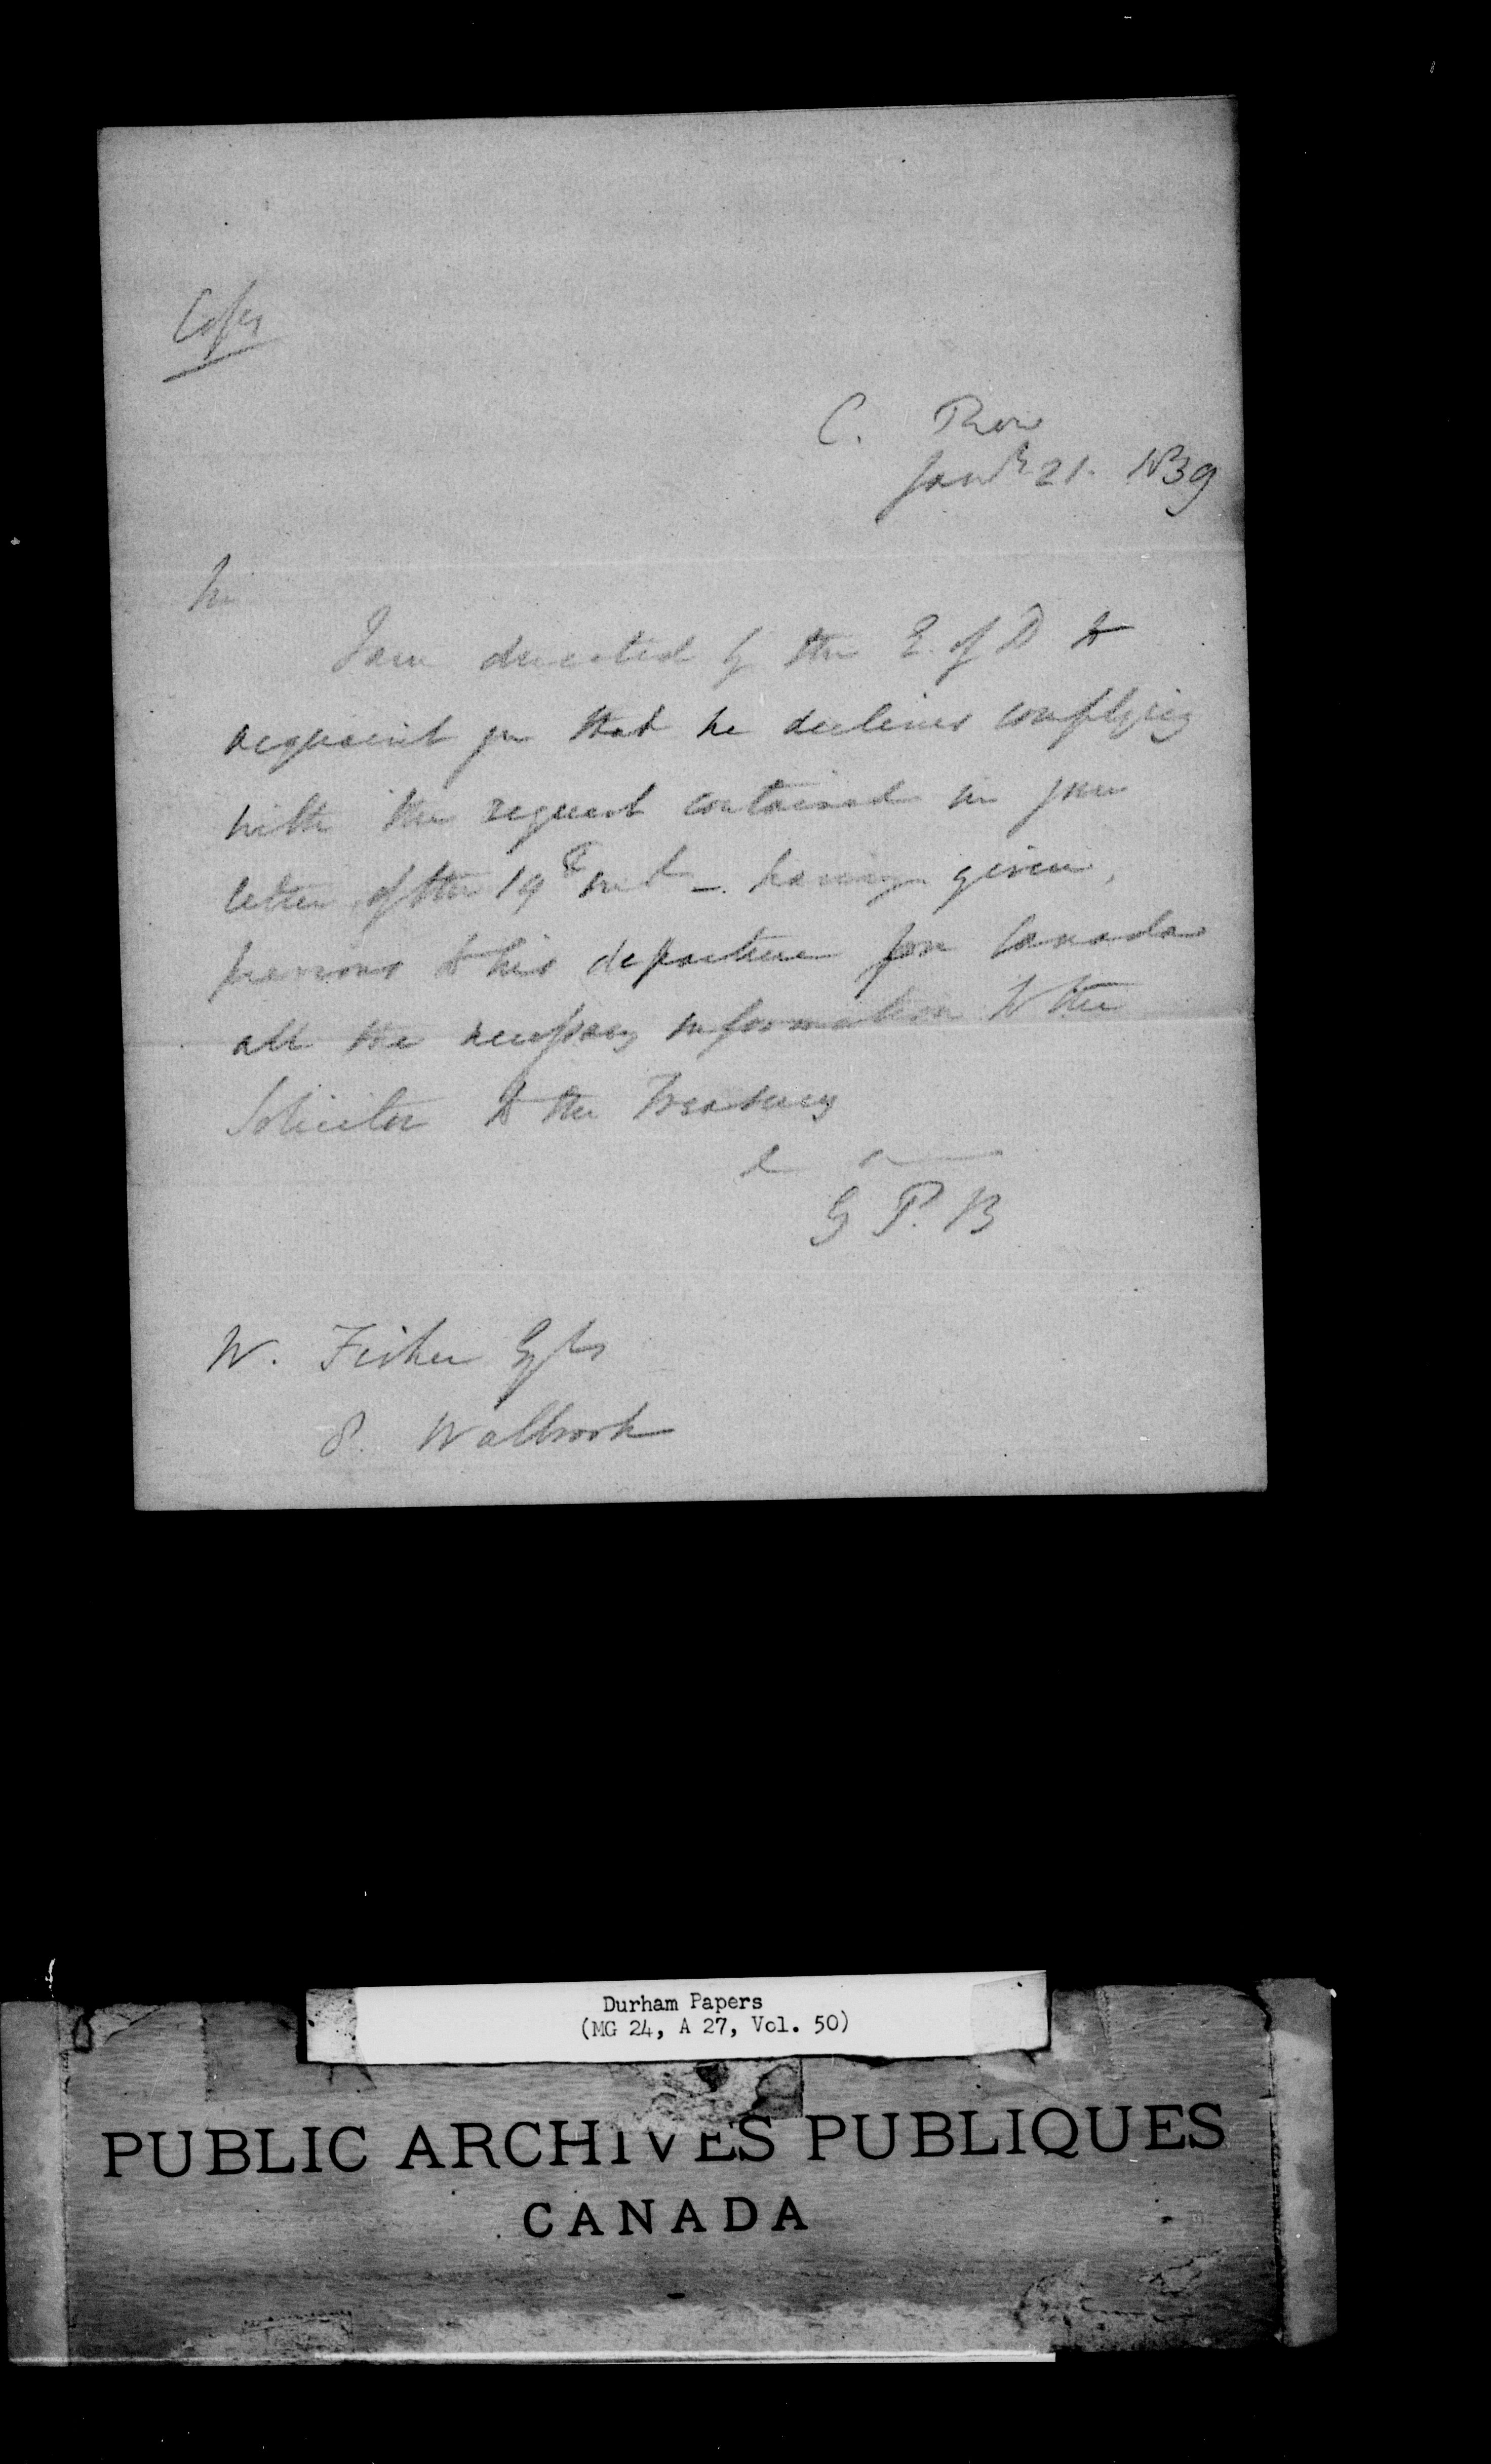 Copy
C. Row
Jany 21. 1839
Sir
I am directed by the E. of D to
acquaint you that he declines complying
with the request contained in your
letter of the 19th inst - having given,
previous to his departure for Canada
all the necessary information to the
Solicitor to the Treasury
G P. B
W. Fisher Esqre
8. Walbrook
Durham Papers
(MG 24, A 27, Vol. 50)
PUBLIC ARCHIVES PUBLIQUES
CANADA